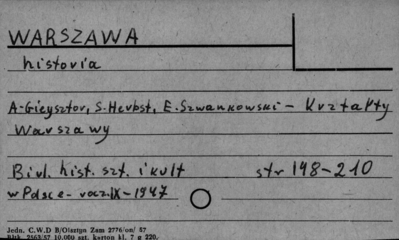 WARSZAWA
historia
A. Gieysztor, S. Herbst, E. Szwankowski - Kształty
Warszawy
Biul. hist. szt. i kult str 148-210
w Polsce - rocz. IX - 1947
Jedn. C.W.D B/Olsztyn Zam 2776/on/ 57
Blbk. 2563/57 10.000 szt. karton kl. 7 g 220.